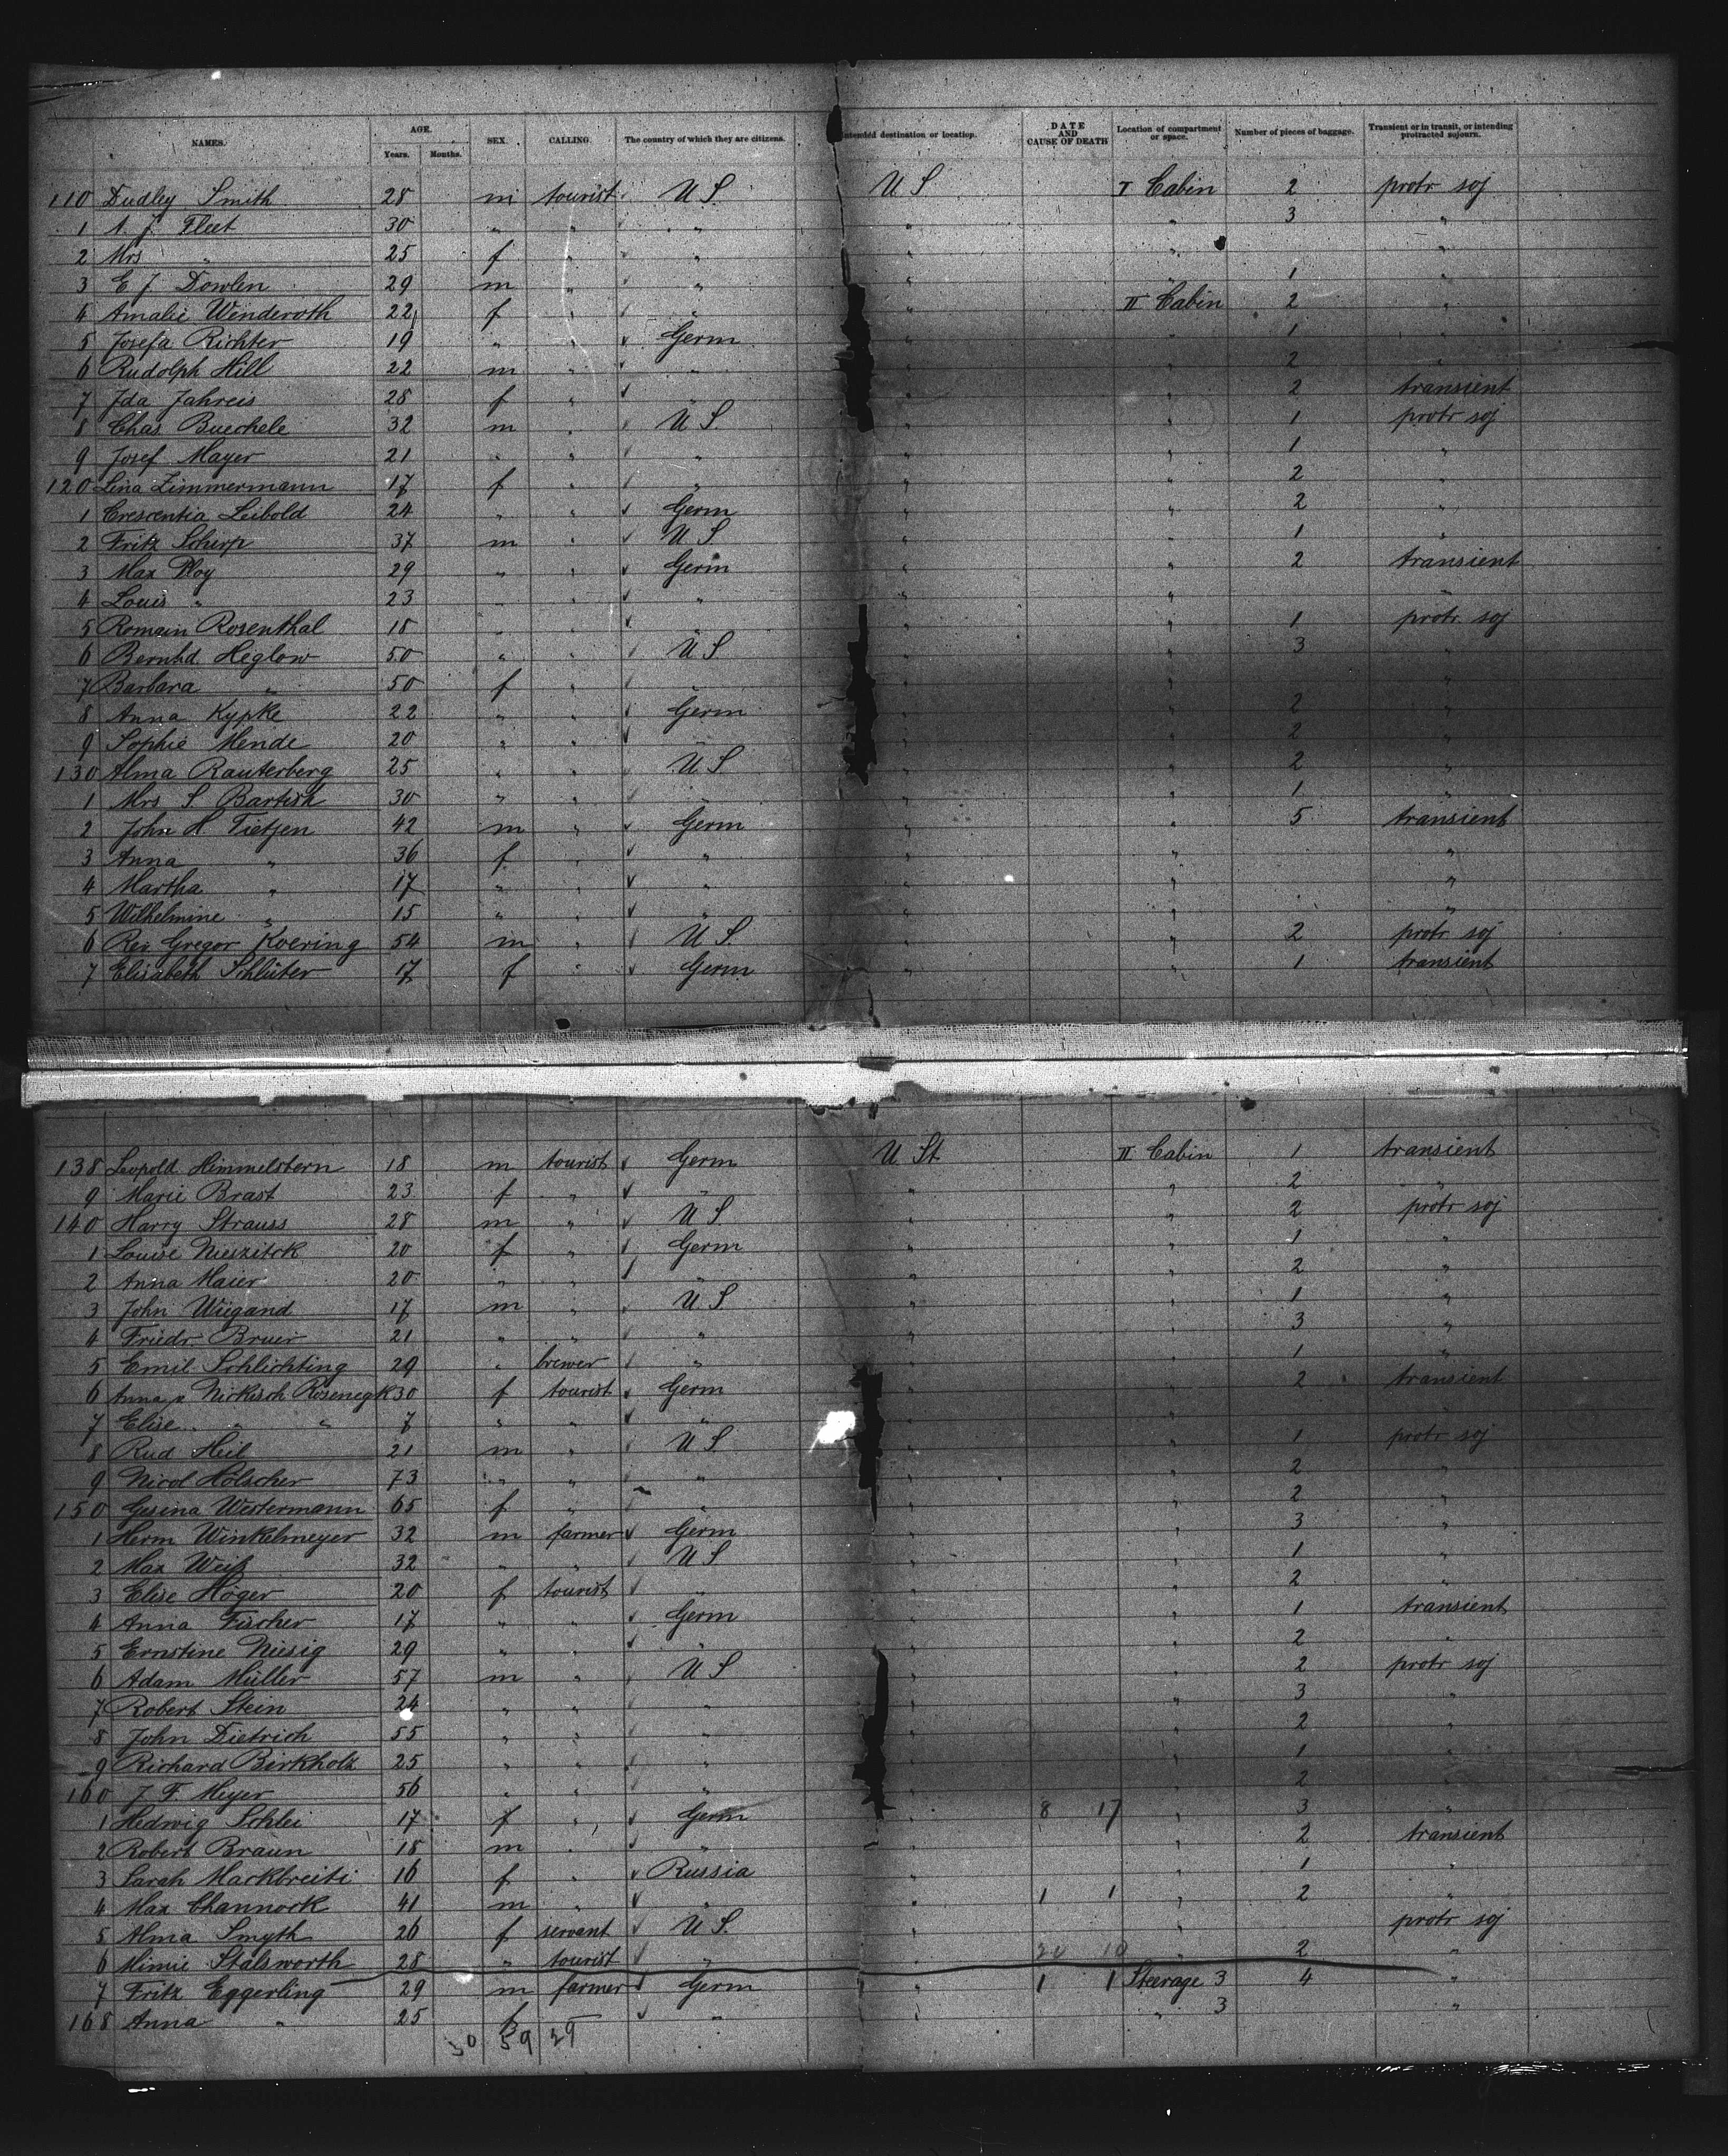 NAMES. AGE. Years. Months. SEX. CALLING. The country of which they are citizens. Intended destination or location. DATE AND CAUSE OF DEATH Location of compartment or space. Number of pieces of baggage. Transient or in transit, or intending protracted sojourn.
110 Dudley Smith 28 m tourist U S. U S I Cabin 2 protr soj
1 A. J. Fleet 30 " " " " " 3 "
2 Mrs " 25 f " " " " "
3 E J Dowlen 29 m " " " " 1 "
4 Amalie Winderoth 22 f " " " II Cabin 2 "
5 Josefa Richter 19 " " Germ " " 1 "
6 Rudolph Hill 22 m " " " " 2 "
7 Ida Jahreis 28 f " " " " 2 transient
8 Chas. Buechele 32 m " U S. " " 1 protr soj
9 Josef Mayer 21 " " " " " 1 "
120 Lina Zimmermann 17 f " " " " 2 "
1 Crescentia Leibold 24 " " Germ " " 2 "
2 Fritz Scherp 37 m " U S " " 1 "
3 Max Ploy 29 " " Germ " " 2 transient
4 Louis " 23 " " " " " "
5 Romain Rosenthal 18 " " " " " 1 protr soj
6 Bernhd. Heglow 50 " " U S " " 3 "
7 Barbara " 50 f " " " " "
8 Anna Kypke 22 " " Germ " " 2 "
9 Sophie Mende 20 " " " " " 2 "
130 Alma Rauterberg 25 " " U S " " 2 "
1 Mrs S. Bartish 30 " " " " " 1 "
2 John H. Tietjen 42 m " Germ " " 5 transient
3 Anna " 36 f " " " " "
4 Martha " 17 " " " " " "
5 Wilhelmine " 15 " " " " " "
6 Rev Gregor Koering 54 m " U S. " " 2 protr soj
7 Elisabeth Schlüter 17 f " Germ " " 1 transient
138 Leopold Himmelstern 18 m tourist Germ U. St. II Cabin 1 transient
9 Marie Brast 23 f " " " " 2 "
140 Harry Strauss 28 m " U S. " " 2 protr soj
1 Louise 20 f " Germ " " 1 "
2 Anna Maier 20 " " " " " 2 "
3 John Wiegand 17 m " U S " " 1 "
4 Friedr. Bruer 21 " " " " " 3 "
5 Emil Schlichting 29 " brewer " " " 1 "
6 Anna v Nirkisch Rosenegk 30 f tourist Germ " " 2 transient
7 Elise " " 7 " " " " " "
8 Rud Heil 21 m " U S " " 1 protr soj
9 Nicol Hölscher 73 " " " " " 2 "
150 Gesina Westermann 65 f " " " " 2 "
1 Herm Winkelmeyer 32 m farmer Germ " " 3 "
2 Max Weiß 32 " " U S " " 1 "
3 Elise Höger 20 f tourist " " " 2 "
4 Anna Fischer 17 " " Germ " " 1 transient
5 Ernstine Niesig 29 " " " " " 2 "
6 Adam Müller 57 m " U S " " 2 protr soj
7 Robert Stein 24 " " " " " 3 "
8 John Dietrich 55 " " " " " 2 "
9 Richard Birkholz 25 " " " " " 1 "
160 J. F. Meyer 56 " " " " " 2 "
1 Hedwig Schlei 17 f " Germ " 8 17 " 3 "
2 Robert Braun 18 m " " " " 2 transient
3 Sarah Markbreiti 16 f " Russia " " 1 "
4 Max Channock 41 m " " " 1 1 " 2 "
5 Alma Smyth 26 f servant U. S. " " protr soj
6 Mimie Stalsworth 28 " tourist " " 10 " 2 "
7 Fritz Eggerling 29 m farmer Germ " 1 1 Steerage 3 4 "
168 Anna " 25 f " " " 3 "
30 59 29